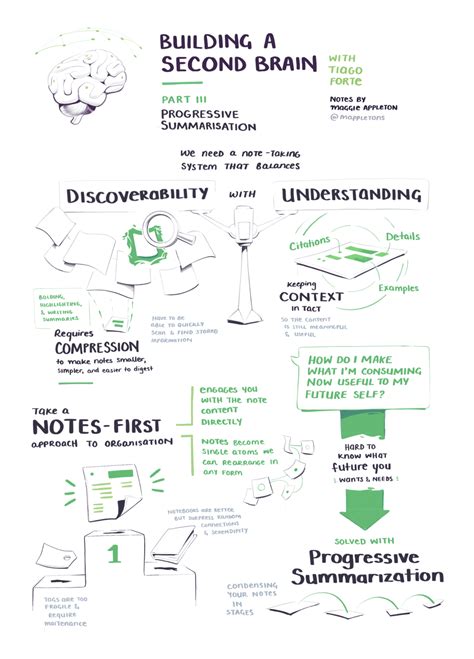 BUILDING A
SECOND BRAIN
WITH
TIAGO
FORTE
PART III
PROGRESSIVE
SUMMARISATION
NOTES BY
MAGGIE APPLETON
@mappletons
WE NEED A NOTE-TAKING
SYSTEM THAT BALANCES
DISCOVERABILITY WITH UNDERSTANDING
Citations
Details
Examples
BOLDING,
HIGHLIGHTING,
& WRITING
SUMMARIES
Requires
COMPRESSION
to make notes smaller,
simpler, and easier to digest
HAVE TO BE
ABLE TO QUICKLY
SCAN & FIND STORED
INFORMATION
Keeping
CONTEXT
in Tact
SO THE CONTENT
IS STILL MEANINGFUL
& USEFUL
HOW DO I MAKE
WHAT I'M CONSUMING
NOW USEFUL TO MY
FUTURE SELF?
Take a
NOTES-FIRST
APPROACH TO ORGANISATION
ENGAGES YOU
WITH THE NOTE
CONTENT
DIRECTLY
NOTES BECOME
SINGLE ATOMS WE
CAN REARRANGE IN
ANY FORM
HARD TO
KNOW WHAT
future you
WANTS & NEEDS
NOTEBOOKS ARE BETTER
BUT SUPRESS RANDOM
CONNECTIONS
& SERENDIPITY
1
TAGS ARE TOO
FRAGILE &
REQUIRE
MAITENANCE
SOLVED WITH
Progressive
Summarization
CONDENSING
YOUR NOTES
IN STAGES